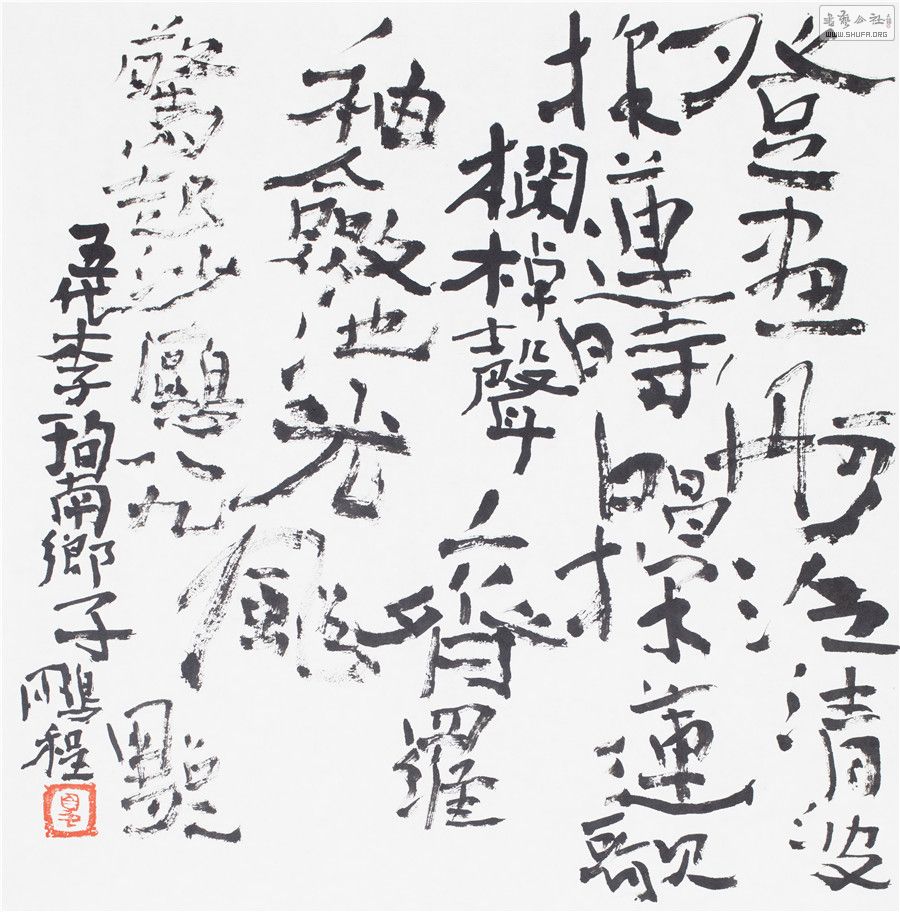 登畫舸泛清波
採蓮時唱採蓮歌
欄棹聲齊羅
袖斂池光颭
驚起沙鷗八九點
五代李珣南鄉子
鵬程
書藝公社
WWW.SHUFA.ORG